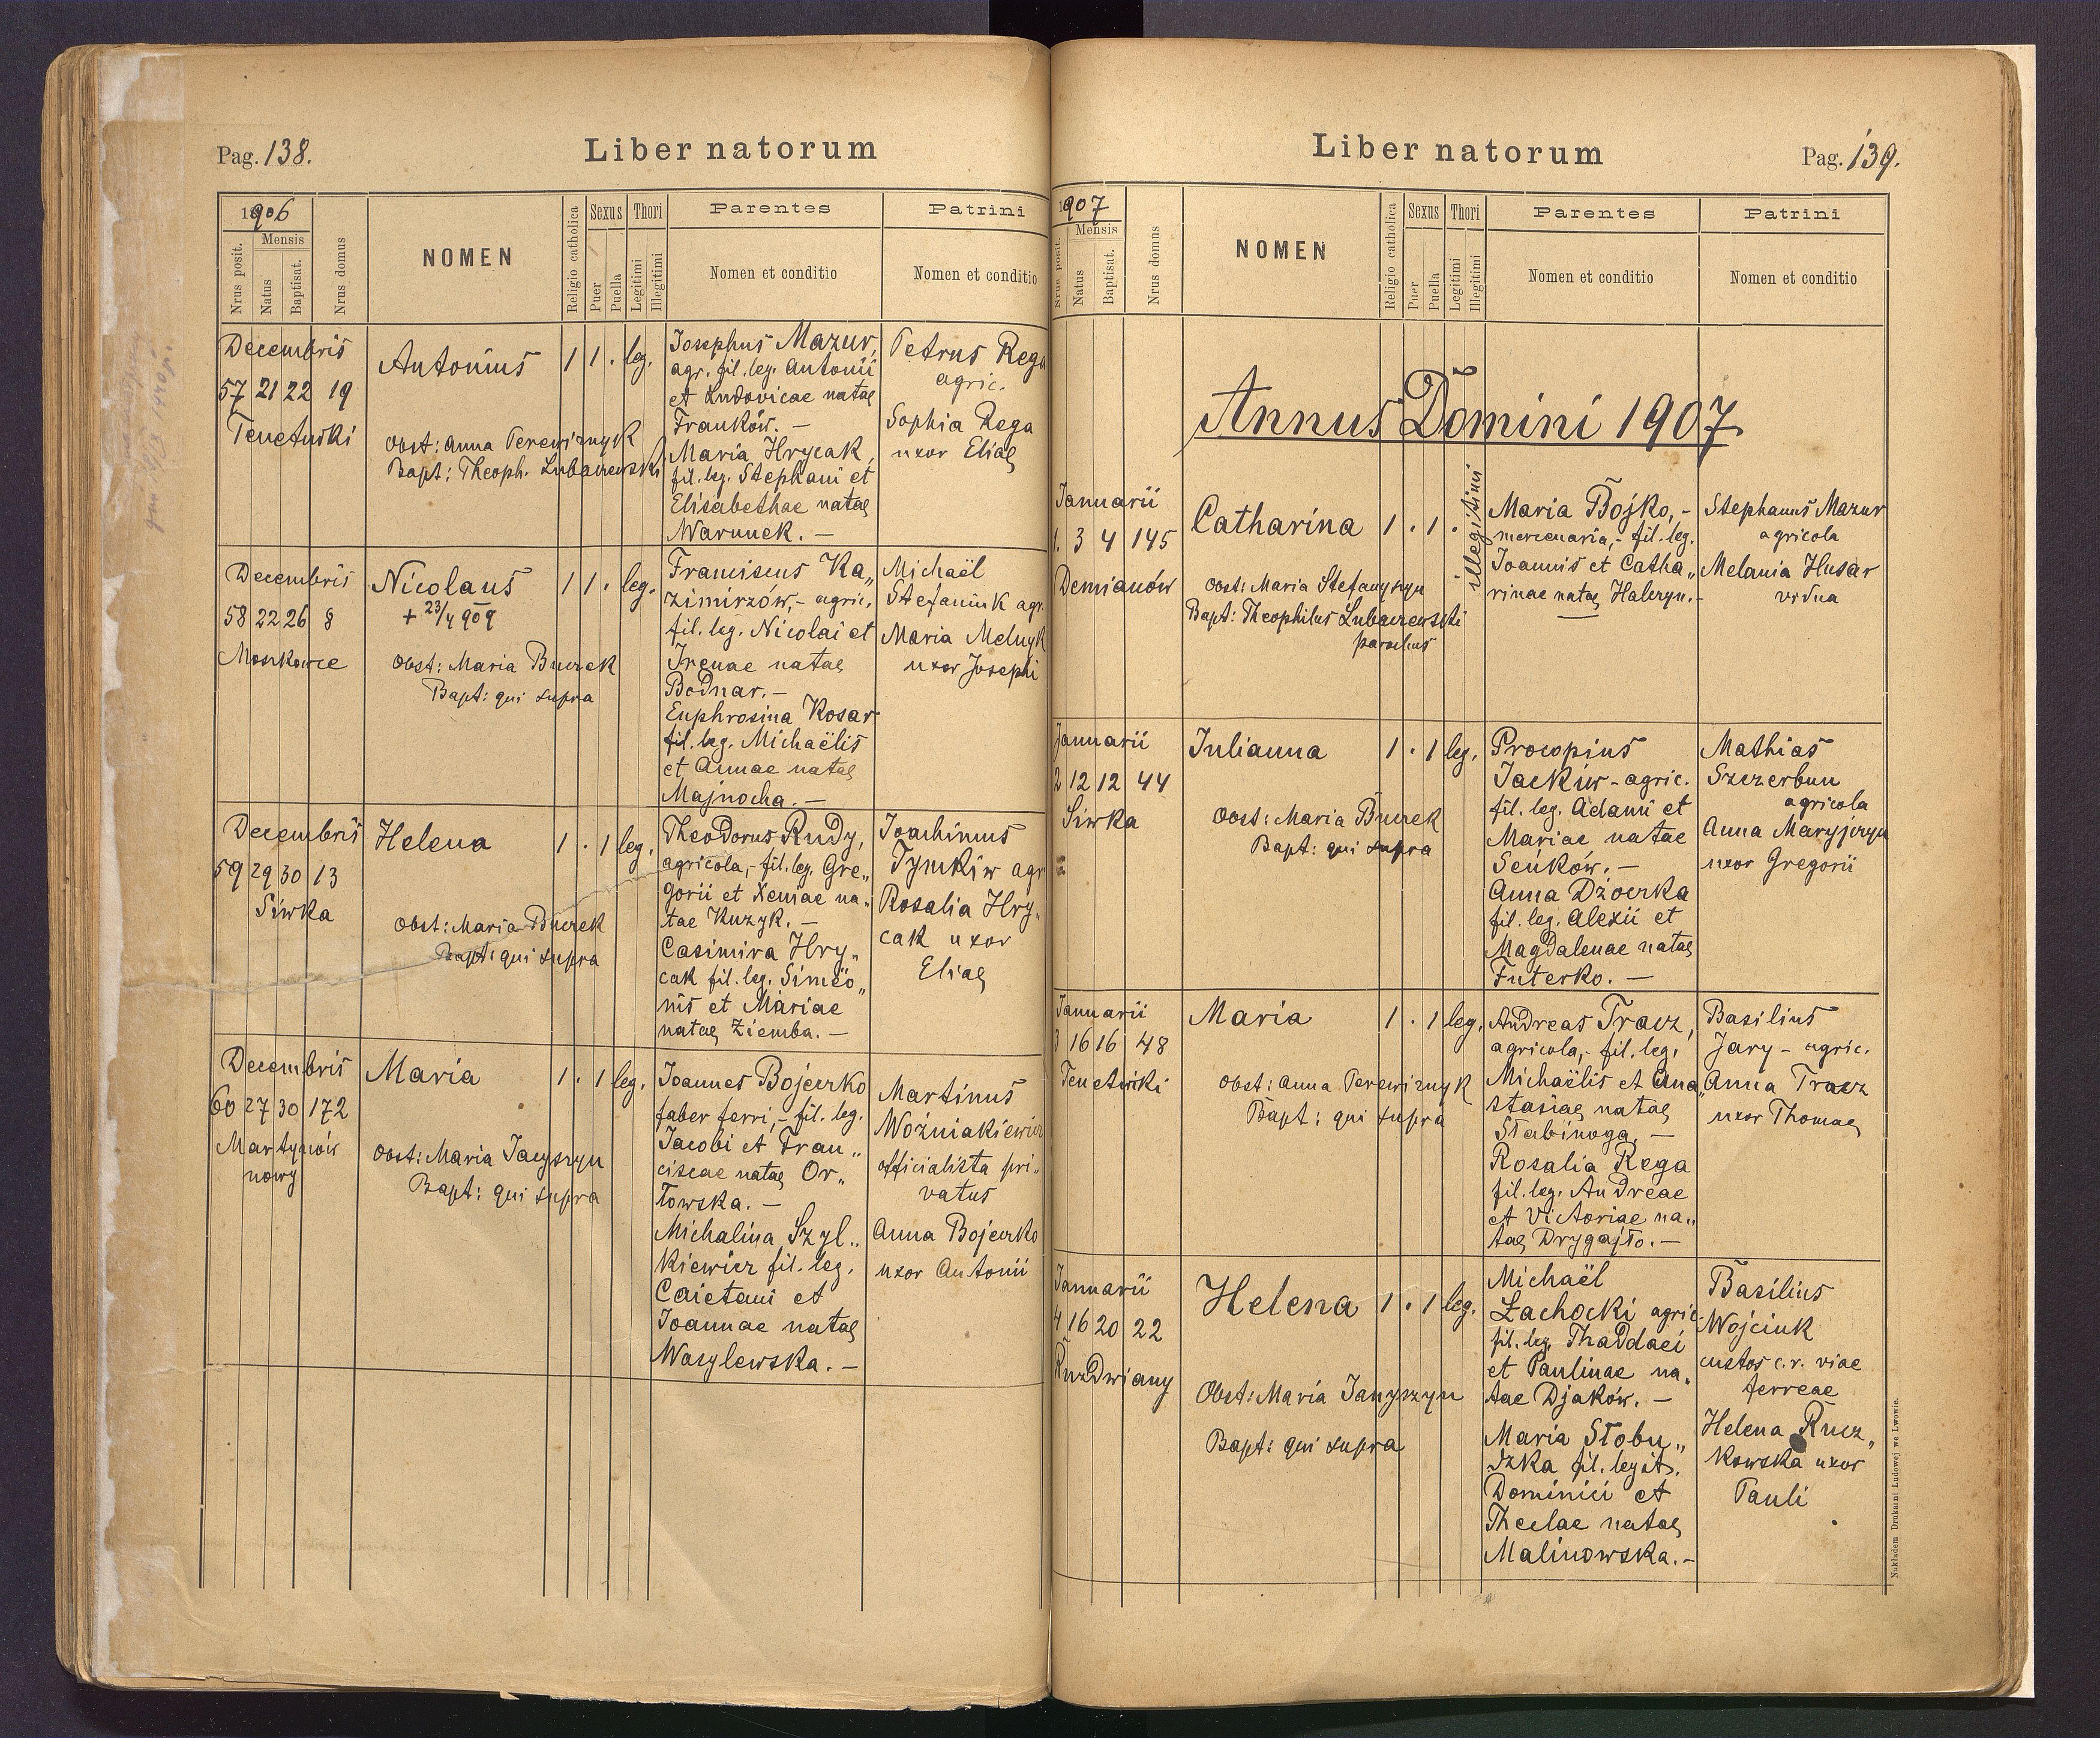 Pag. 138.
Liber natorum
1906
Nrus posit.
Mensis
Natus
Baptisat.
Nrus domus
NOMEN
Religio catholica
Sexus
Puer
Puella
Thori
Legitimi
Illegitimi
Parentes
Nomen et conditio
Patrini
Nomen et conditio
Decembris
57 21 22 19
Tenetniki
Antonius
1 1 . leg.
Obst: Anna Perewiznyk
Bapt: Theoph. Lubaczewski
Josephus Mazur,
agr. fil. leg. Antonii
et Ludovicae natae
Franków. —
Maria Hrycak,
fil. leg. Stephani et
Elisabethae natae
Warunek. —
Petrus Rega
agric.
Sophia Rega
uxor Eliae
Decembris
58 22 26 8
Moszkowce
Nicolaus
+ 23/4 909
1 1 . leg.
Obst: Maria Buczek
Bapt: qui supra
Franciscus Ka„
zimirzów, - agric.
fil. leg. Nicolai et
Irenae natae
Bodnar. —
Euphrosina Kosar
fil. leg. Michaëlis
et Annae natae
Majnocha. —
Michaël
Stefaniuk agr.
Maria Melnyk
uxor Josephi
Decembris
59 29 30 13
Siwka
Helena
1 . 1 leg.
Obst: Maria Buczek
Bapt: qui supra
Theodorus Rudy,
agricola, - fil. leg. Gre„
gorii et Xeniae na„
tae Kuzyk. —
Casimira Hry„
cak fil. leg. Simeo„
nis et Mariae
natae Ziemba. —
Joachimus
Tymkiw agr
Rosalia Hry„
cak uxor
Eliae
Decembris
60 27 30 172
Martynów
nowy
Maria
1 . 1 leg.
Obst: Maria Jacyszyn
Bapt: qui supra
Joannes Bojeczko
faber ferri, - fil. leg.
Jacobi et Fran„
ciscae natae Or„
łowska. —
Michalina Szyl„
kiewicz fil. leg.
Caietani et
Joannae natae
Wasylewska. —
Martinus
Woźniakiewicz
officialista pri„
vatus
Anna Bojeczko
uxor Antonii
Liber natorum
Pag. 139.
1907
Nrus posit.
Mensis
Natus
Baptisat.
Nrus domus
NOMEN
Religio catholica
Sexus
Puer
Puella
Thori
Legitimi
Illegitimi
Parentes
Nomen et conditio
Patrini
Nomen et conditio
Annus Domini 1907
Januarii
1. 3 4 145
Demianów
Catharina
1 . 1 .
illegitimi
Obst: Maria Stefanyszyn
Bapt: Theophilus Lubaczewski
parochus
Maria Bojko, -
mercenaria, - fil. leg.
Joannis et Catha„
rinae natae Halczyn. -
Stephanus Mazur
agricola
Melania Husar
vidua
Januarii
2 12 12 44
Siwka
Julianna
1 . 1 leg.
Obst: Maria Buczek
Bapt: qui supra
Procopius
Jackiw - agric.
fil. leg. Adami et
Mariae natae
Seńków. —
Anna Dżoczka
fil. leg. Alexii et
Magdalenae natae
Futerko. —
Mathias
Szczerbun
agricola
Anna Maryjczyn
uxor Gregorii
Januarii
3 16 16 48
Tenetniki
Maria
1 . 1 leg.
Obst: Anna Perewiznyk
Bapt: qui supra
Andreas Tracz,
agricola, - fil. leg.
Michaëlis et Ana„
stasiae natae
Słabinoga. —
Rosalia Rega
fil. leg. Andreae
et Victoriae na„
tae Drygajło. —
Basilius
Jary - agric.
Anna Tracz
uxor Thomae
Januarii
4 16 20 22
Kuzdwiany
Helena
1 . 1 leg.
Obst: Maria Janyszyn
Bapt: qui supra
Michaël
Łachocki agric.
fil. leg. Thaddaei
et Paulinae na„
tae Djaków. —
Maria Słobu„
dzka fil. legit.
Dominici et
Theclae natae
Malinowska. —
Basilius
Wojciuk
custos c. r. viae
ferreae
Helena Rucz„
kowska uxor
Pauli
Nakładem Drukarni Ludowej we Lwowie.